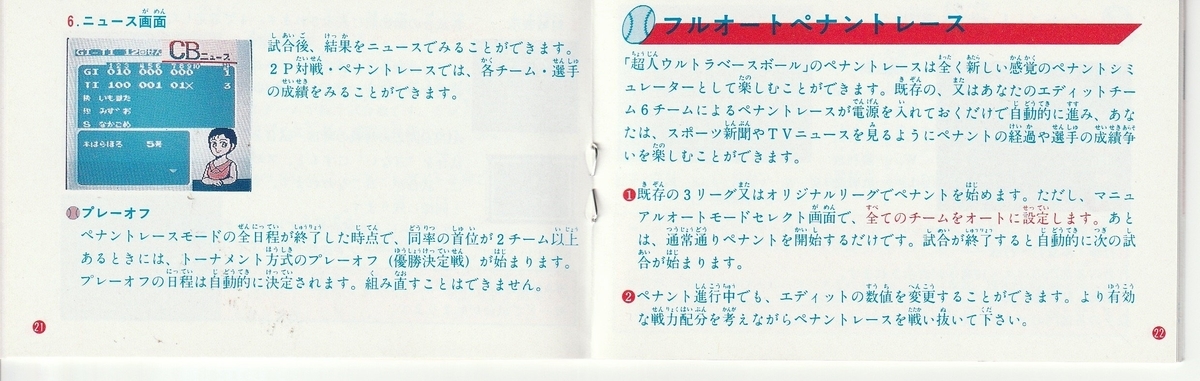 6.ニュース画面
GI-TI 12回せん
CBニュース
GI 010 000 000 1
TI 100 001 01X 3
S なかごめ
本はらぼろ 5号
試合後、結果をニュースでみることができます。
2P対戦・ペナントレースでは、各チーム・選手
の成績をみることができます。
プレーオフ
ペナントレースモードの全日程が終了した時点で、同率の首位が2チーム以上
あるときには、トーナメント方式のプレーオフ(優勝決定戦)が始まります。
プレーオフの日程は自動的に決定されます。組み直すことはできません。
21
フルオートペナントレース
「超人ウルトラベースボール」のペナントレースは全く新しい感覚のペナントシミ
ュレーターとして楽しむことができます。既存の、又はあなたのエディットチー
ム6チームによるペナントレースが電源を入れておくだけで自動的に進み、あな
たは、スポーツ新聞やTVニュースを見るようにペナントの経過や選手の成績争
いを楽しむことができます。
❶既存の3リーグ又はオリジナルリーグでペナントを始めます。ただし、マニュ
アルオートモードセレクト画面で、全てのチームをオートに設定します。あと
は、通常通りペナントを開始するだけです。試合が終了すると自動的に次の試
合が始まります。
❷ペナント進行中でも、エディットの数値を変更することができます。より有効
な戦力配分を考えながらペナントレースを戦い抜いて下さい。
22